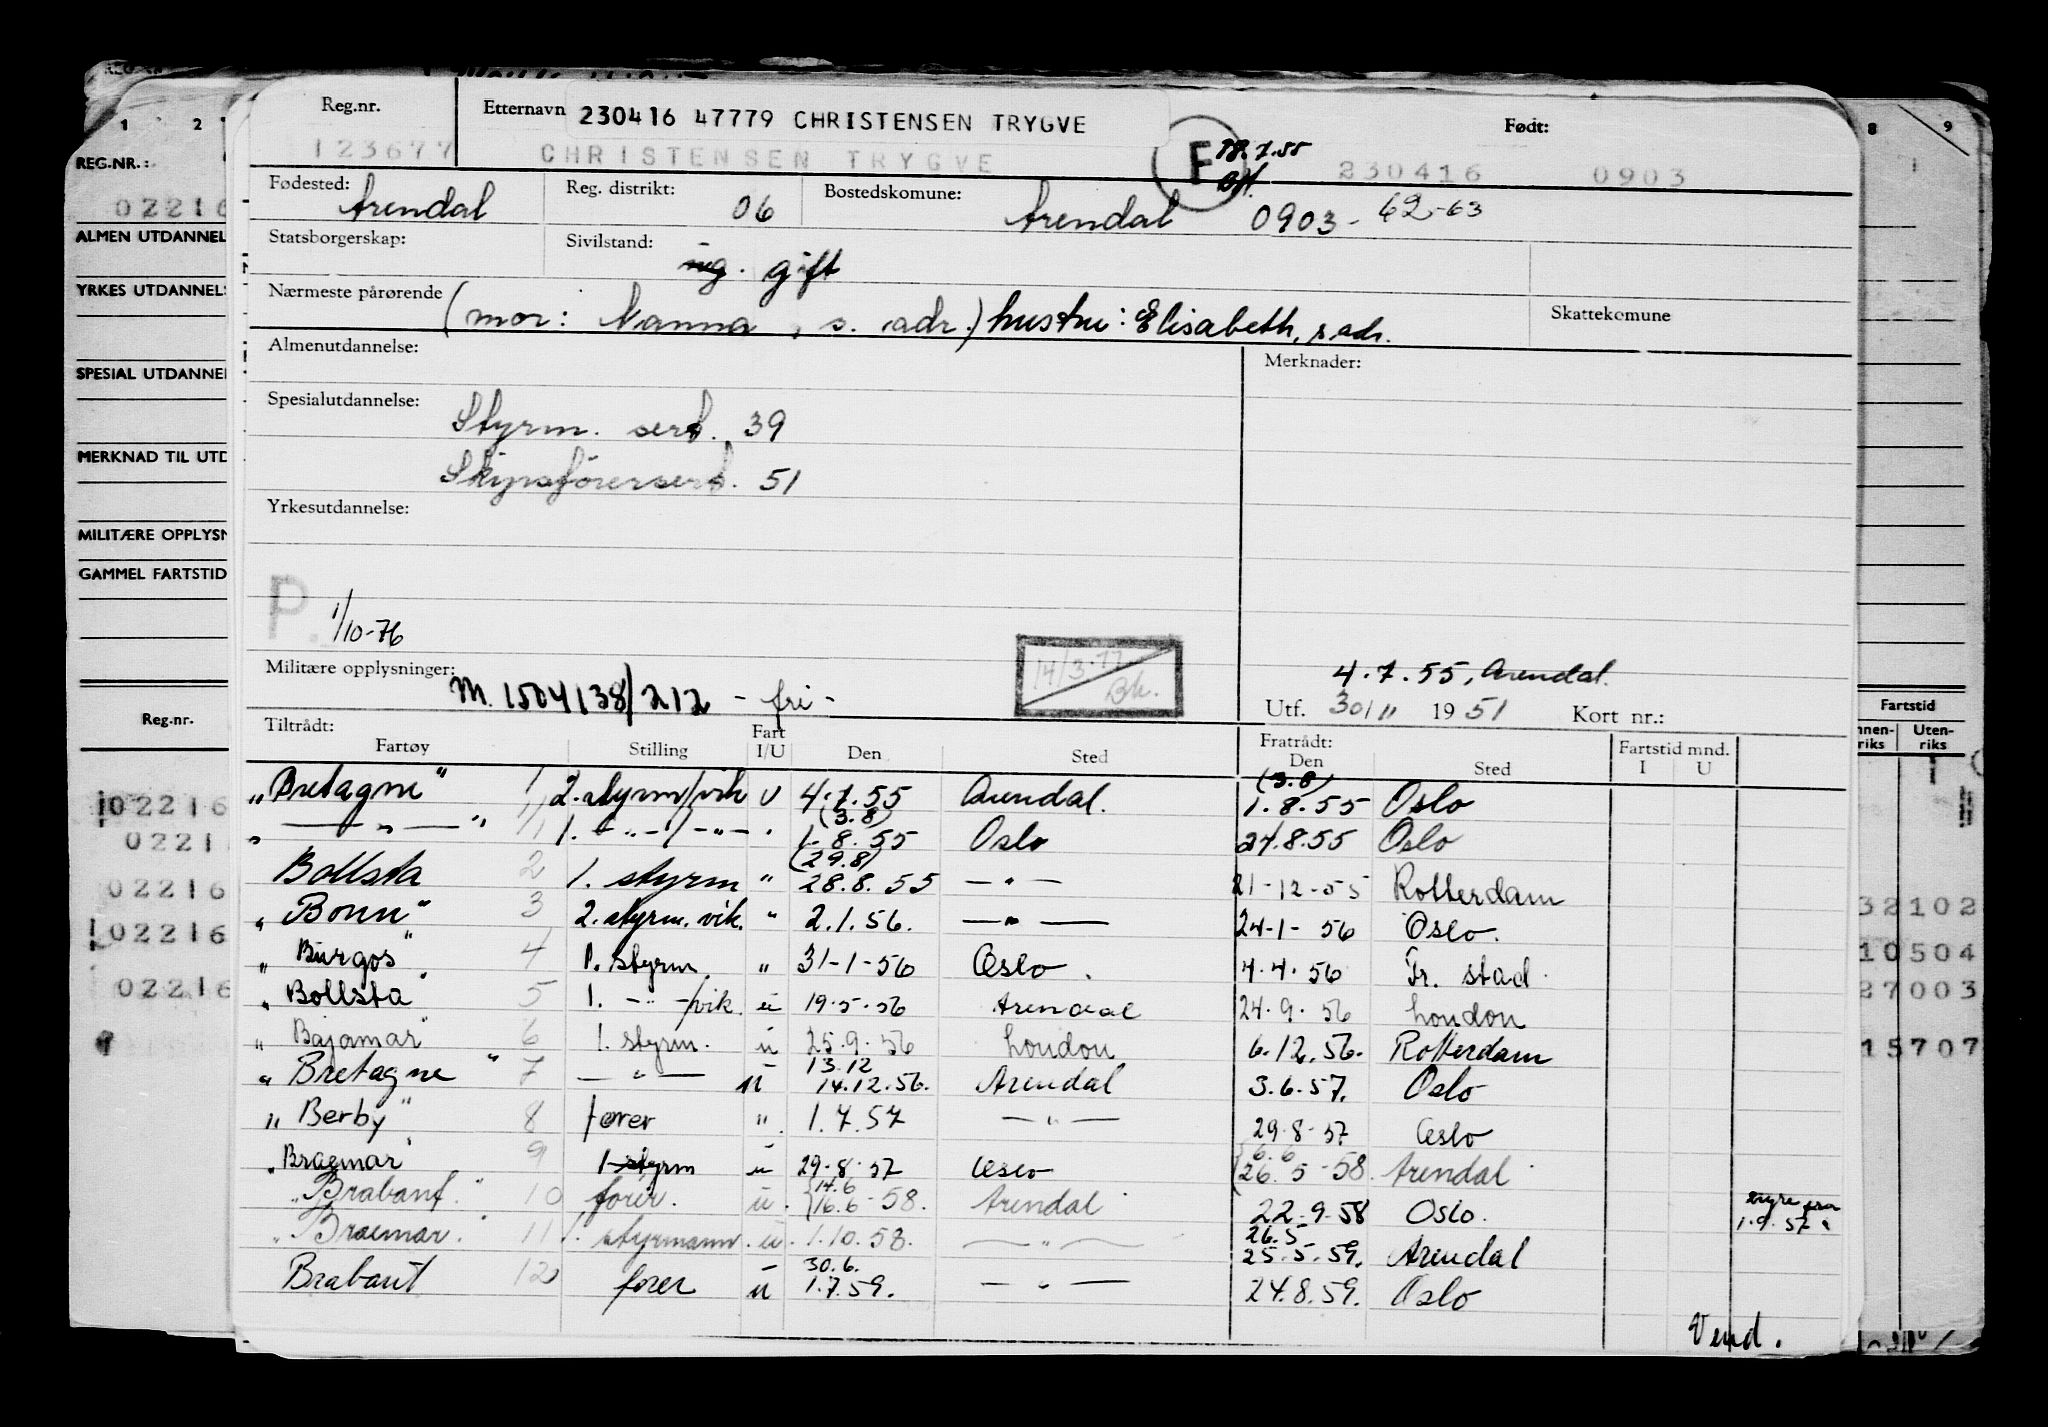 Reg.nr. Etternavn 230416 47779 CHRISTENSEN TRYGVE Født:
123677 CHRISTENSEN TRYGVE F 18.7.55 230416 0903
Fødested: Arendal Reg. distrikt: 06 Bostedskomune: Arendal 0903 - 62-63
Statsborgerskap: Sivilstand: ug. gift
Nærmeste pårørende (mor: Nanna, s. adr.) hustru: Elisabeth, s. adr. Skattekomune
Almenutdannelse: Merknader:
Spesialutdannelse: Styrm. sert. 39
Skipsførersert. 51
Yrkesutdannelse:
P. 1/10-76
Militære opplysninger: M. 1504/38/212 - fri - 14/3.77 Bk. 4.7.55, Arendal.
Utf. 30/11 1951 Kort nr.:
Tiltrådt: Fratrådt: Fartstid mnd.
Fartøy Stilling Fart I/U Den Sted Den Sted I U
"Bretagne" 1 2. styrm/vik U 4.7.55 Arendal. (3.8) 1.8.55 Oslo
" — " — " 1. - " - / - " - " (3.8) 1.8.55 Oslo 24.8.55 Oslo
Bollsta 2 1. styrm " (29.8) 28.8.55 — " — 21-12-55 Rotterdam
"Bonn" 3 2. styrm. vik. " 2.1.56. — " — 24-1-56 Oslo.
"Burgos" 4 1. styrm. " 31-1-56 Oslo. 4.4.56 Fr. stad.
"Bollsta" 5 1. - " - /vik. u 19.5.56 Arendal 24.9.56 London
"Bajamar" 6 1. styrm. u 25.9.56 London 6.12.56. Rotterdam
"Bretagne" 7 — " — u 13.12 14.12.56. Arendal 3.6.57. Oslo
"Berby" 8 fører " 1.7.57 — " — 29.8.57 Oslo
"Braemar" 9 1 styrm u 29.8.57 Oslo 6.6 26.5-58. Arendal
"Brabant." 10 fører. u. 14.6 16.6-58. Arendal 22.9.58 Oslo. 1.9.57.
"Braemar." 11 1. styrmann. u. 1.10.58. — " — 26.5 25.5.59. Arendal
Brabant 12 fører u 30.6. 1.7.59. — " — 24.8.59. Oslo
Vend.
1 2
REG.NR.:
02216
ALMEN UTDANNEL
YRKES UTDANNELS
SPESIAL UTDANNE
MERKNAD TIL UTD
MILITÆRE OPPLYSN
GAMMEL FARTSTID
Reg.nr.
02216
0221
02216
02216
02216
8 9
Fartstid
nnen-riks Uten-riks
32102
10504
27003
15707